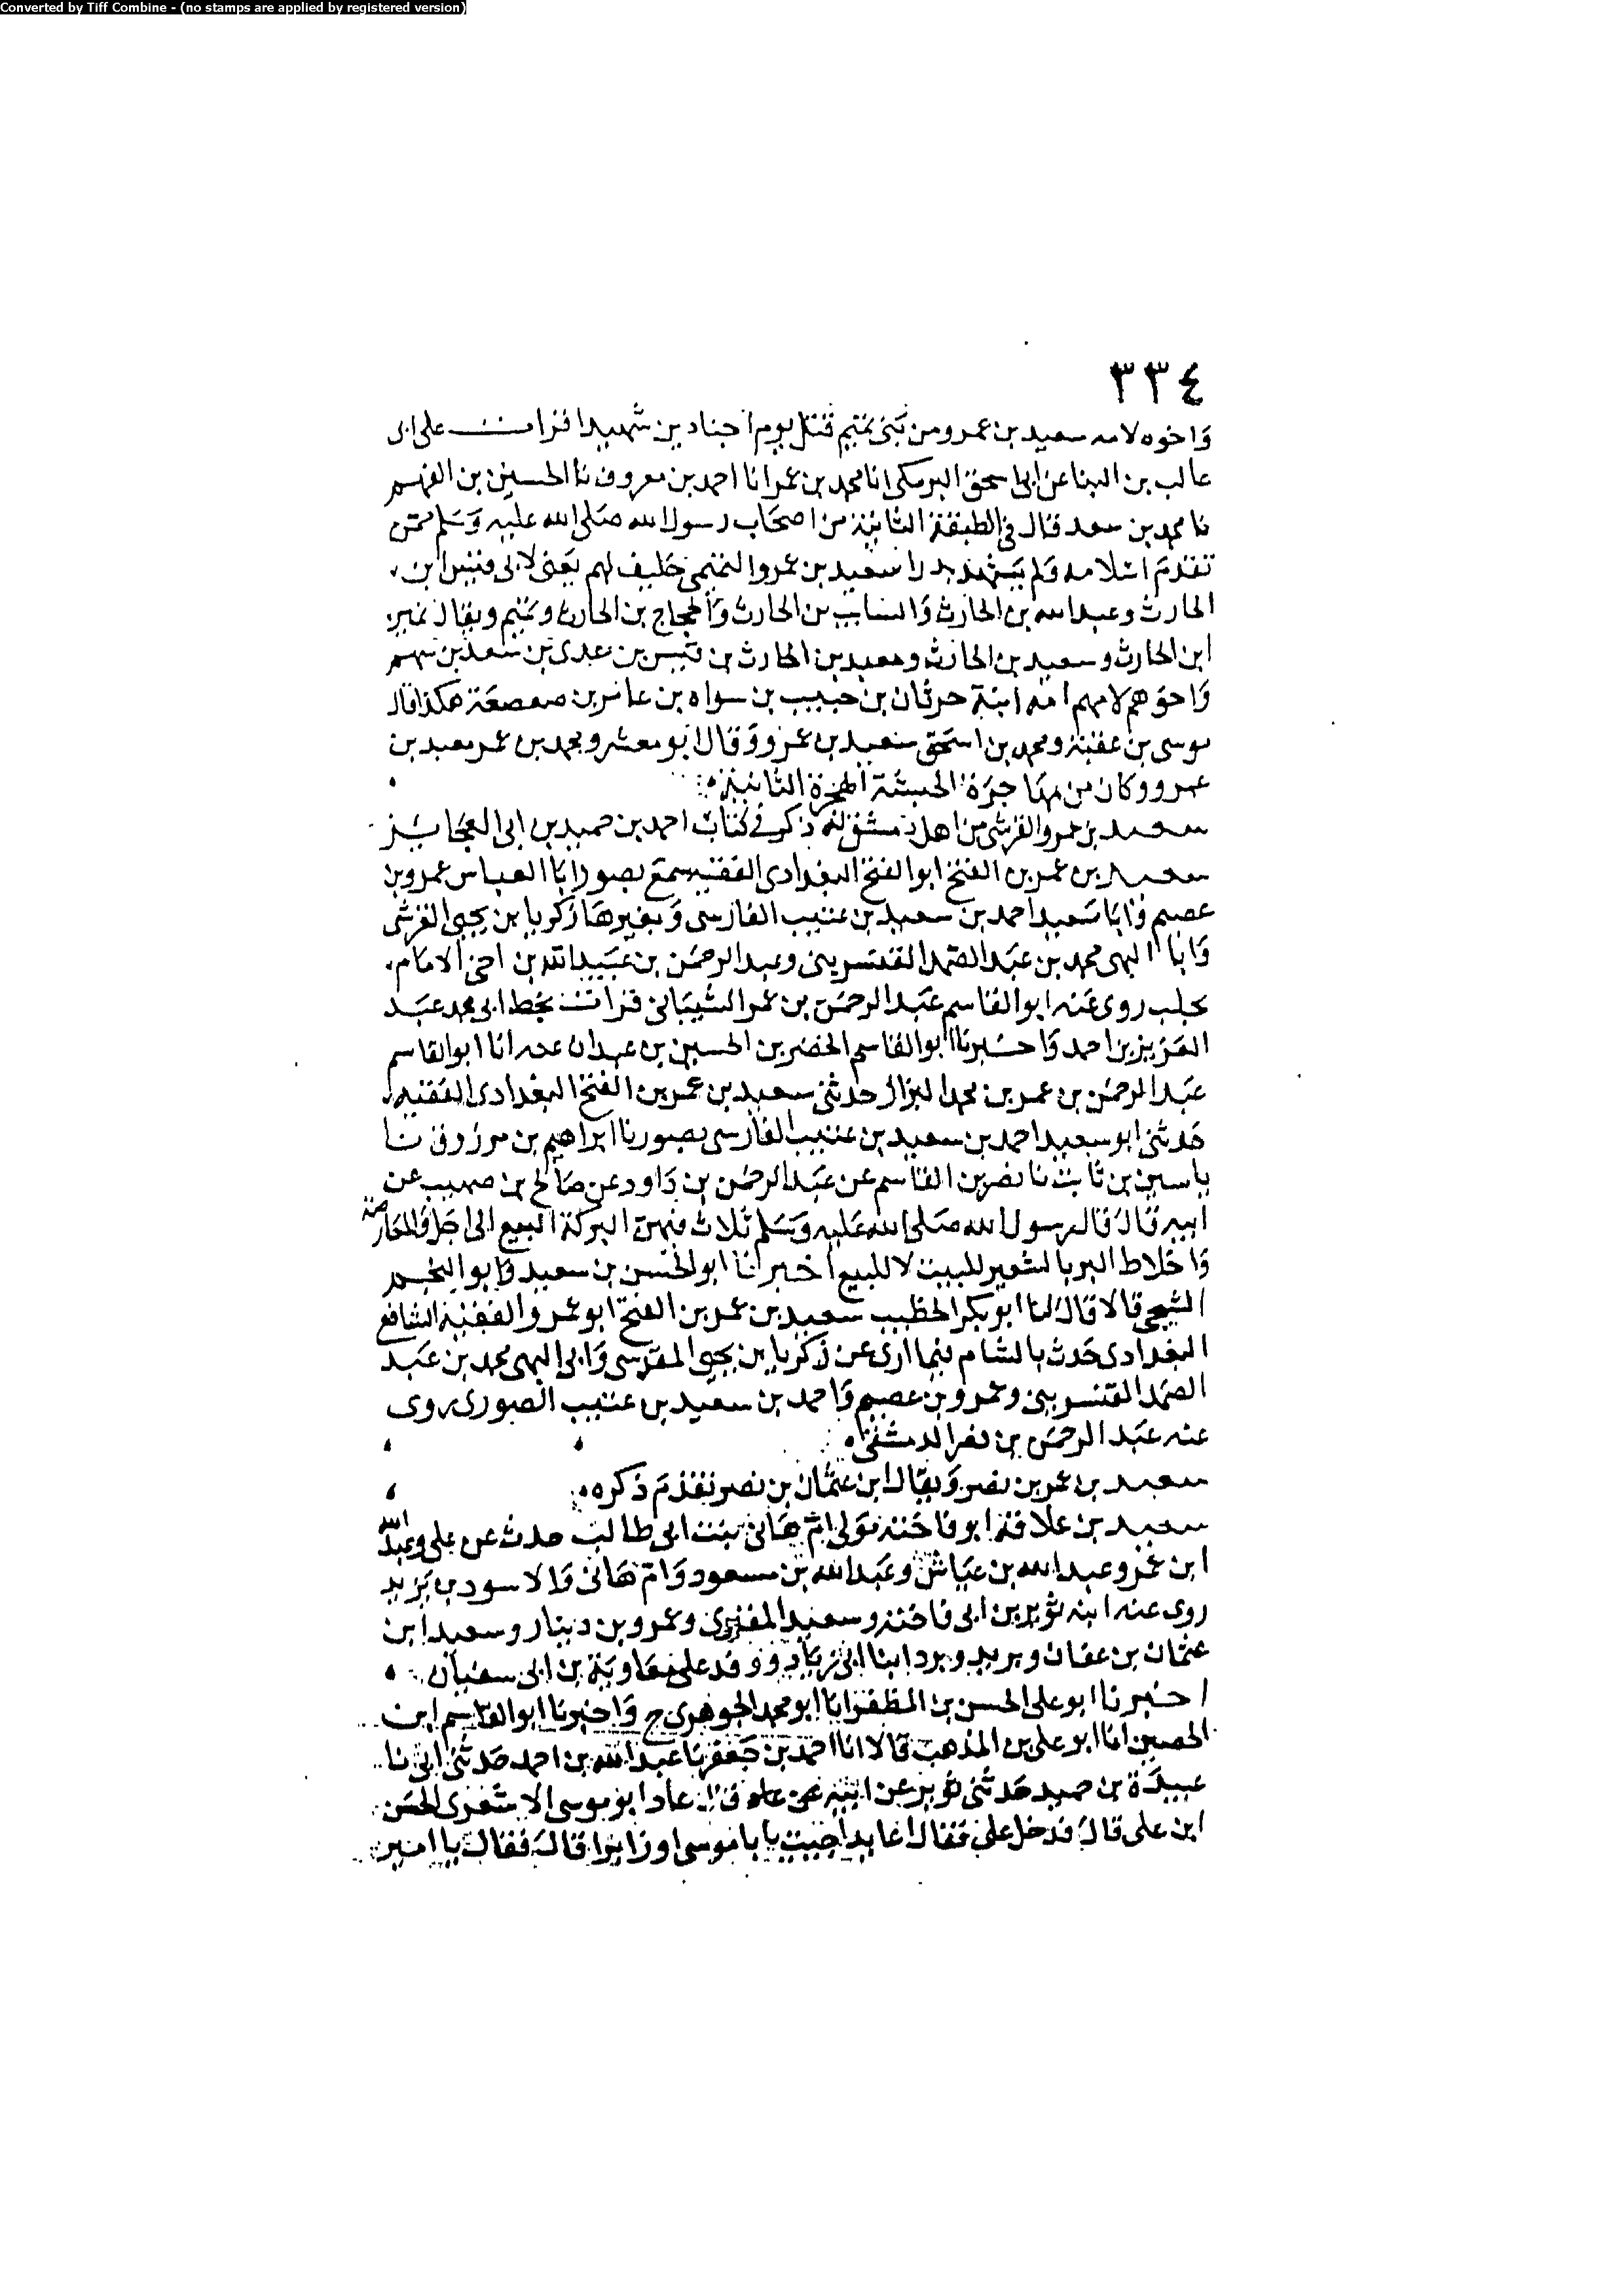 Converted by Tiff Combine - (no stamps are applied by registered version)
٣٣٤
واخوه لامه سعيد بن عمرو من بنى تميم قتل يوم اجنادين شهيدا قرات على ابى
غالب بن البنا عن ابى اسحق البرمكى انا محمد بن عمر انا احمد بن معروف نا الحسين بن الفهم
نا محمد بن سعد قال فى الطبقة الثانية من اصحاب رسول الله صلى الله عليه وسلم ممن
تقدم اسلامه ولم يشهد بدرا سعيد بن عمرو التميمى حليف لهم يعنى لابى قيس ابن
الحارث وعبد الله بن الحارث والسايب بن الحارث والحجاج بن الحارث وتميم ويقال نمير
ابن الحارث وسعيد بن الحارث ومعبد بن الحارث بن قيس بن عدى بن سعد بن سهم
واخوهم لامهم امه ابنة حرثان بن حبيب بن سواه بن عامر بن صعصعة هكذا قال
موسى بن عقبة ومحمد بن اسحق سعيد بن عمرو وقال ابو معشر ومحمد بن عمر معبد بن
عمرو وكان من مهاجرة الحبشة الهجرة الثانية
سعيد بن عمرو القرشى من اهل دمشق له ذكر فى كتاب احمد بن حميد بن ابى العجايز
سعيد بن عمر بن الفتح ابو الفتح البغدادى الفقيه سمع بصور ابا العباس عمرو بن
عصيم وابا سعيد احمد بن سعيد بن عتيب الفارسى وبغيرها زكريا بن يحيى القرشى
وابا البهى محمد بن عبد الصمد القنسرينى وعبد الرحمن بن عبيد الله بن اخى الامام
بحلب روى عنه ابو القاسم عبد الرحمن بن عمر الشيبانى قرات بخط ابى محمد عبد
العزيز بن احمد واخبرنا ابو القاسم الخضر بن الحسين بن عبدان عنه انا ابو القاسم
عبد الرحمن بن عمر بن محمد البزار حدثنى سعيد بن عمر بن الفتح البغدادى الفقيه
حدثنى ابو سعيد احمد بن سعيد بن عتيب الفارسى بصور نا ابراهيم بن مرزوق نا
ياسين بن ثابت نا نصر بن القاسم عن عبد الرحمن بن داود عن صالح بن صهيب عن
ابيه قال قال رسول الله صلى الله عليه وسلم ثلاث فيهن البركة البيع الى اجل والمعارضة
واخلاط البر بالشعير للبيت لا للبيع اخبرنا ابو الحسن بن سعيد وابو النجم
الشيحى قالا قال لنا ابو بكر الخطيب سعيد بن عمر بن الفتح ابو عمرو الفقيه الشافعى
البغدادى حدث بالشام فيما ارى عن زكريا بن يحيى المقدسى وابى البهى محمد بن عبد
الصمد القنسرينى وعمرو بن عصيم واحمد بن سعيد بن عتيب الصورى روى
عنه عبد الرحمن بن نصر الدمشقى
سعيد بن عمر بن نصر ويقال ابن عثمان بن نصر تقدم ذكره
سعيد بن علاقة ابو فاختة مولى ام هانى بنت ابى طالب حدث عن على وعبد الله
ابن عمر وعبد الله بن عباس وعبد الله بن مسعود وام هانى والاسود بن يزيد
روى عنه ابنه ثوير بن ابى فاختة وسعيد المقبرى وعمرو بن دينار وسعيد ابن
عثمان بن عفان ويزيد وبرد ابنا ابى زياد ووفد على معاوية بن ابى سفيان
اخبرنا ابو على الحسن بن المظفر انا ابو محمد الجوهرى ح واخبرنا ابو القاسم ابن
الحصين انا ابو على بن المذهب قالا انا احمد بن جعفر نا عبد الله بن احمد حدثنى ابى نا
عبيدة بن حميد حدثنى ثوير عن ابيه عن على قال عاد ابو موسى الاشعرى الحسن
ابن على قال فدخل على فقال اعايدا جيت يابا موسى او زايرا قال فقال يا امير